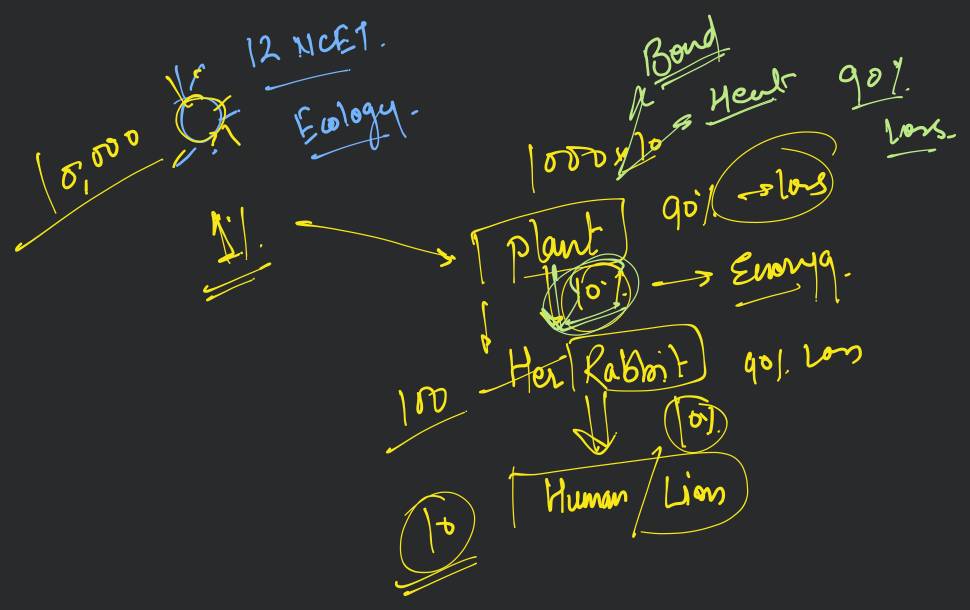 12 NCET.
Ecology.
10,000
1%.
Bond
Heat
90%
Loss
1000 x
90% → loss
Plant
10%
Energy.
Her Rabbit
90% Loss
100
10%
Human / Lion
10